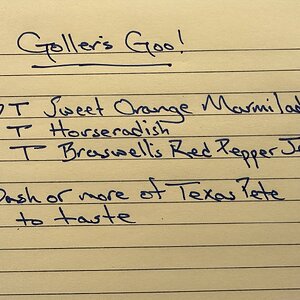 Goller's Goo!
T Sweet Orange Marmilad
T Horseradish
T Braswell's Red Pepper Je
Dash or more of Texas Pete
to taste